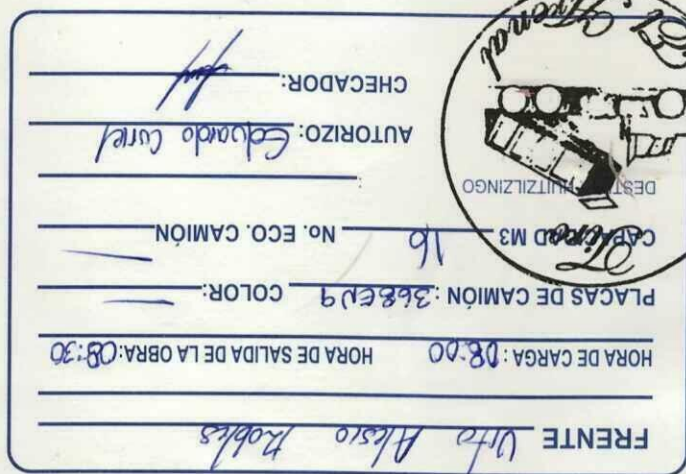 FRENTE Vito Alesio Robles
HORA DE CARGA: 08:00 HORA DE SALIDA DE LA OBRA: 08:30
PLACAS DE CAMIÓN: 368EN9 COLOR: —
CAPACIDAD M3 16 No. ECO. CAMIÓN —
DESTINO HUITZILZINGO
AUTORIZO: Eduardo Curiel
CHECADOR:
Tiro
El Arenal